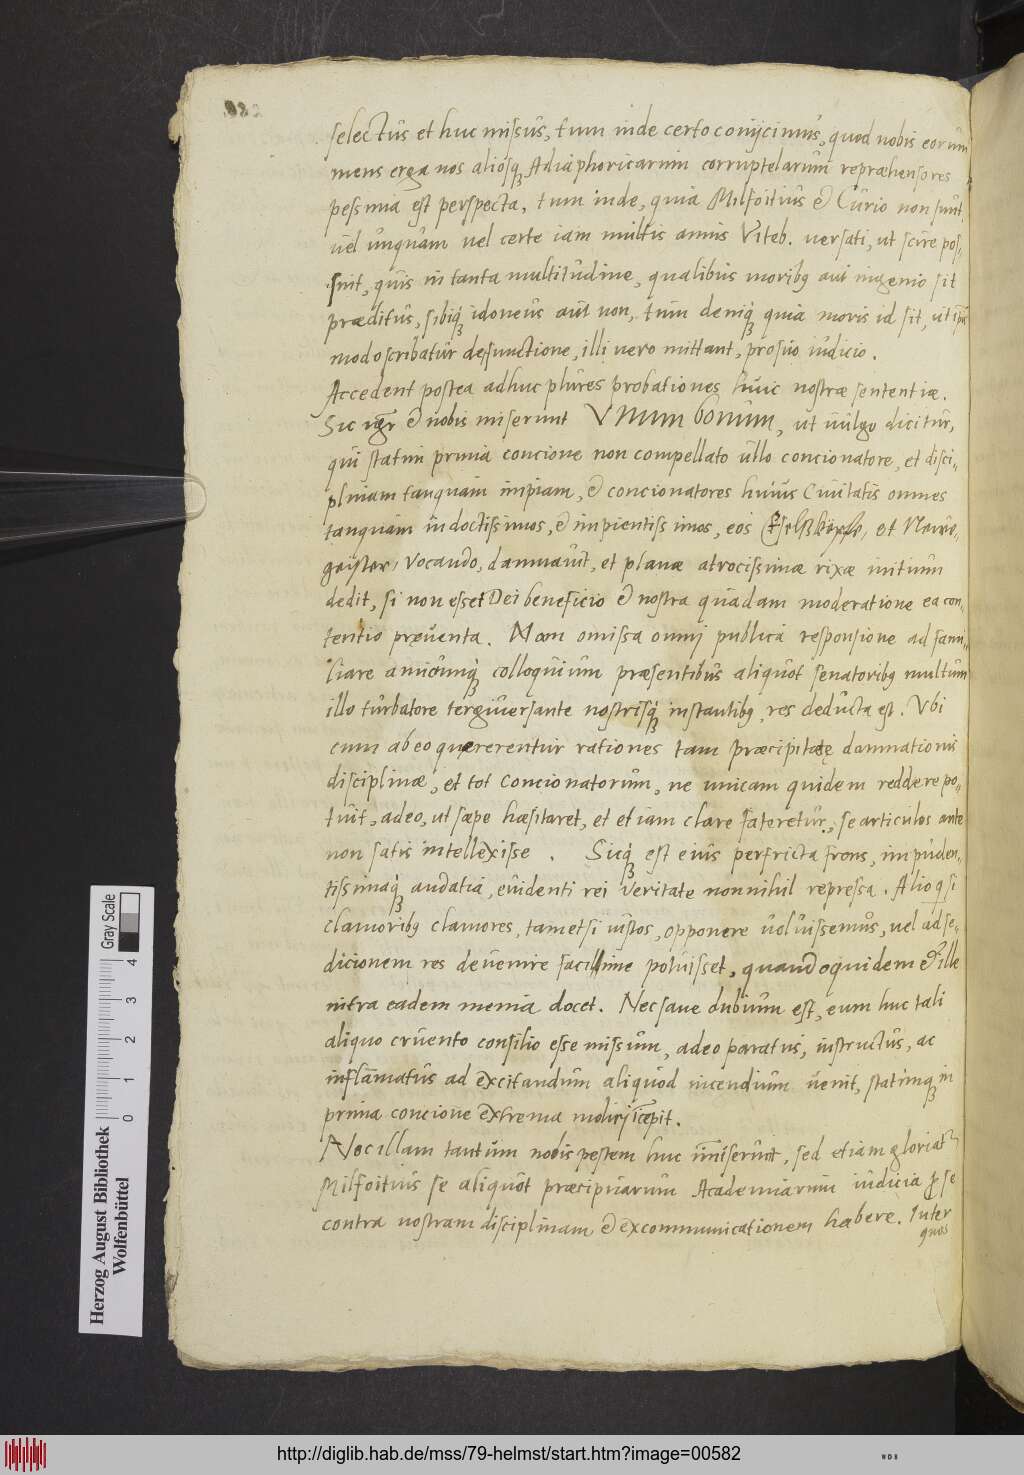 selectus et huc missus, tum inde certo conijcimus, quod nobis eorum
mens erga nos aliosq; Adiaphoricarum corruptelarum repræhensores
pessima est perspecta, tum inde, quia Milfoitius & Curio non sunt
uel unquam uel certe iam multis annis Viteb. uersati, ut scire pos-
sint, quis in tanta multitudine, qualibus moribq aut ingenio sit
præditus, sibiq; idoneus aut non, tum deniq; quia moris id sit, ut
modo scribatur de functione, illi uero mittant, pro suo iudicio.
Accedent postea adhuc plures probationes huic nostræ sententiæ.
Sic & nobis miserunt Vnum bonum, ut uulgo dicitur,
qui statim prima concione non compellato ullo concionatore, et disci-
plinam tanquam impiam, & concionatores huius Ciuitatis omnes
tanquam indoctissimos, & impientissimos, eos Eselsköpfe, et Newe-
geister, vocando, damnauit, et planæ atrocissimæ rixæ initium
dedit, si non esset Dei beneficio & nostra quadam moderatione ea con-
tentio pręuenta. Nam omissa omnj publica responsione ad fami-
liare amicumq; colloquium præsentibus aliquot senatoribq multum
illo turbatore tergiuersante nostrisq; instantibq, res deducta est. Vbi
cum ab eo quærerentur rationes tam præcipitatę damnationis
disciplinæ, et tot concionatorum, ne unicam quidem reddere po-
tuit, adeo, ut sæpe hæsitaret, et etiam clare fateretur, se articulos ante
non satis intellexisse . Sicq; est eius perfricta frons, impuden-
tissimaq; audatia, euidenti rei veritate nonnihil repressa. Alioq si
clamoribq clamores, tametsi iustos, opponere uoluissemus, uel ad se-
dicionem res deuenire facillime potuisset, quandoquidem & ille
intra eadem menia docet. Nec sane dubium est, eum huc tali
aliquo cruento consilio esse missum, adeo paratus, instructus, ac
inflamatus ad excitandum aliquod incendium uenit, statimq; in
prima concione extrema molirj cępit.
Nec illam tantum nobis pestem huc immiserunt, sed etiam gloriat
Milfoitius se aliquot præcipuarum Academiarum iudicia p se
contra nostram disciplinam & excommunicationem habere. Inter
quos
Herzog August Bibliothek
Wolfenbüttel
0 1 2 3 4
Gray Scale
http://diglib.hab.de/mss/79-helmst/start.htm?image=00582